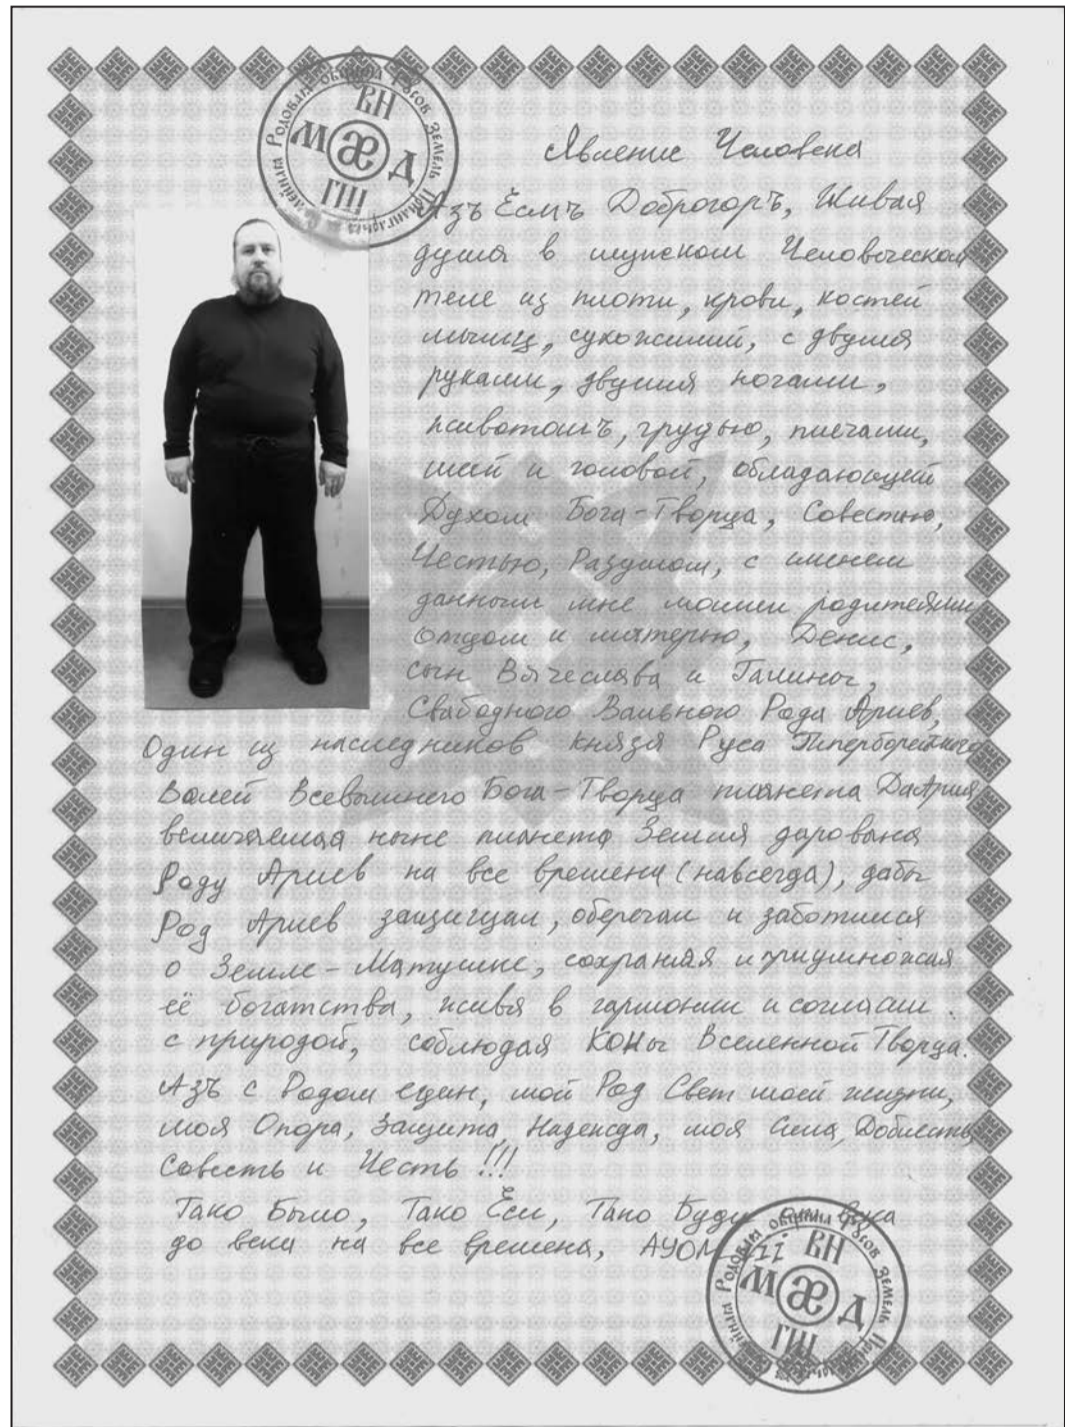 Явление Человека
Азъ Есмъ Доброгоръ, Живая
душа в мужском Человеческом
теле из плоти, крови, костей
мышц, сухожилий, с двумя
руками, двумя ногами,
животомъ, грудью, плечами,
шей и головой, обладающей
Духом Бога-Творца, Совестью,
Честью, Разумом, с именем
данным мне моими родителями
отцом и матерью, Денис,
сын Вячеслава и Галины,
Свободного Вольного Рода Ариев,
Один из наследников князя Руса Гиперборейского
Волей Всевышнего Бога-Творца планета ДаАрия
величаемая ныне планета Земля дарована
Роду Ариев на все времена (навсегда), дабы
Род Ариев защищал, оберегал и заботился
о Земле-Матушке, сохраняя и приумножая
её богатства, живя в гармонии и согласии
с природой, соблюдая КОНы Вселенной Творца.
Азъ с Родом един, мой Род Свет моей жизни,
моя Опора, Защита, Надежда, моя Сила, Доблесть
Совесть и Честь !!!
Тако Было, Тако Еси, Тако Буди от века
до века на все времена, АУОМ
Родовая община Русов Земель
ВН
М æ Д
ГШ
Родовая община Русов Земель
ВН
М æ Д
ГШ